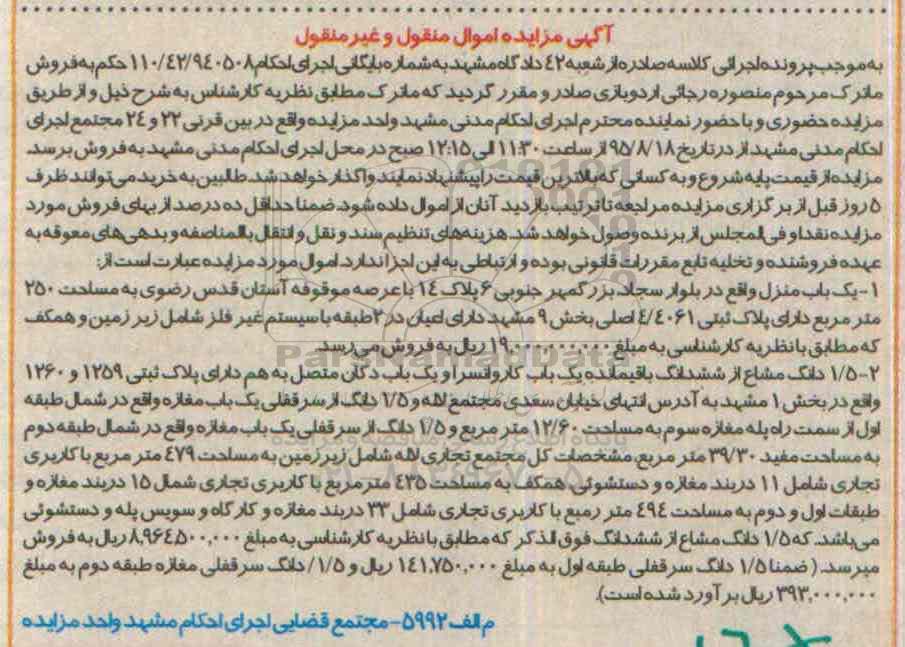 آگهی مزایده اموال منقول و غیر منقول
به موجب پرونده اجرائی کلاسه صادره از شعبه ۴۲ دادگاه مشهد به شماره بایگانی اجرای احکام ۱۱۰/۴۲/۹۴۰۵۰۸ حکم به فروش
ماترک مرحوم منصوره رجائی اردوبازی صادر و مقرر گردید که ماترک مطابق نظریه کارشناس به شرح ذیل و از طریق
مزایده حضوری و با حضور نماینده محترم اجرای احکام مدنی مشهد واحد مزایده واقع در بین قرنی ۲۲ و ۲۴ مجتمع اجرای
احکام مدنی مشهد از در تاریخ ۹۵/۸/۱۸ از ساعت ۱۱:۳۰ الی ۱۲:۱۵ صبح در محل اجرای احکام مدنی مشهد به فروش برسد.
مزایده از قیمت پایه شروع و به کسانی که بالاترین قیمت را پیشنهاد نمایند واگذار خواهد شد. طالبین به خرید می توانند ظرف
۵ روز قبل از برگزاری مزایده مراجعه تا ترتیب بازدید آنان از اموال داده شود. ضمنا حداقل ده درصد از بهای فروش مورد
مزایده نقدا و فی المجلس از برنده وصول خواهد شد. هزینه های تنظیم سند و نقل و انتقال بالمناصفه و بدهی های معوقه به
عهده فروشنده و تخلیه تابع مقررات قانونی بوده و ارتباطی به این اجرا ندارد. اموال مورد مزایده عبارت است از:
۱- یک باب منزل واقع در بلوار سجاد، بزرگمهر جنوبی ۶ پلاک ۱۴ با عرصه موقوفه آستان قدس رضوی به مساحت ۲۵۰
متر مربع دارای پلاک ثبتی ۴/۴۰۶۱ اصلی بخش ۹ مشهد دارای اعیان در ۲ طبقه با سیستم غیر فلز شامل زیر زمین و همکف
که مطابق با نظریه کارشناسی به مبلغ ۱۹,۰۰۰,۰۰۰,۰۰۰ ریال به فروش می رسد.
۲- ۱/۵ دانگ مشاع از ششدانگ باقیمانده یک باب کاروانسرا و یک باب دکان متصل به هم دارای پلاک ثبتی ۱۲۵۹ و ۱۲۶۰
واقع در بخش ۱ مشهد به آدرس انتهای خیابان سعدی مجتمع لاله و ۱/۵ دانگ از سرقفلی یک باب مغازه واقع در شمال طبقه
اول از سمت راه پله مغازه سوم به مساحت ۱۲/۶۰ متر مربع و ۱/۵ دانگ از سرقفلی یک باب مغازه واقع در شمال طبقه دوم
به مساحت مفید ۳۹/۳۰ متر مربع. مشخصات کل مجتمع تجاری لاله شامل زیر زمین به مساحت ۴۷۹ متر مربع با کاربری
تجاری شامل ۱۱ دربند مغازه و دستشوئی، همکف به مساحت ۴۳۵ متر مربع با کاربری تجاری شمال ۱۵ دربند مغازه و
طبقات اول و دوم به مساحت ۴۹۴ متر رمبع با کاربری تجاری شامل ۳۳ دربند مغازه و کارگاه و سویس پله و دستشوئی
می باشد. که ۱/۵ دانگ مشاع از ششدانگ فوق الذکر که مطابق با نظریه کارشناسی به مبلغ ۸,۹۶۴,۵۰۰,۰۰۰ ریال به فروش
میرسد. ( ضمنا ۱/۵ دانگ سرقفلی طبقه اول به مبلغ ۱۴۱,۷۵۰,۰۰۰ ریال و ۱/۵/ دانگ سرقفلی مغازه طبقه دوم به مبلغ
۳۹۳,۰۰۰,۰۰۰ ریال بر آورد شده است).
م الف ۵۹۹۲- مجتمع قضایی اجرای احکام مشهد واحد مزایده
ParsNamadData
پایگاه اطلاع رسانی مناقصه و مزایده